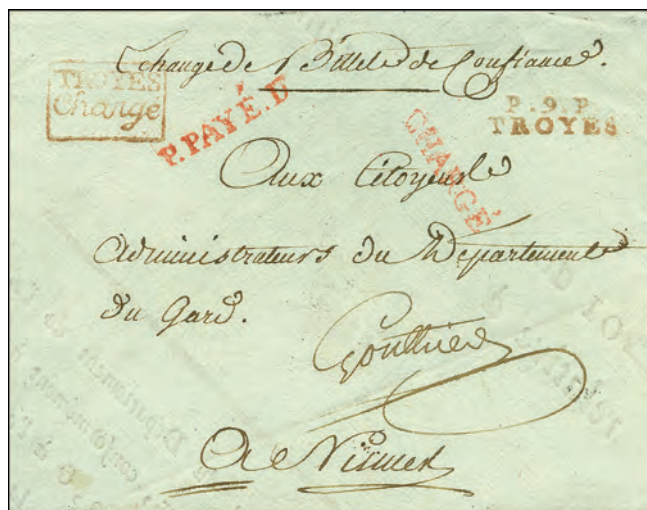 Echange de Billets de Confiance.
TROYES
Chargé
P.PAYÉ.D
CHARGÉ
P.9.P.
TROYES
Aux Citoyens
Administrateurs du Département
du Gard.
Gouthier
A Nismes